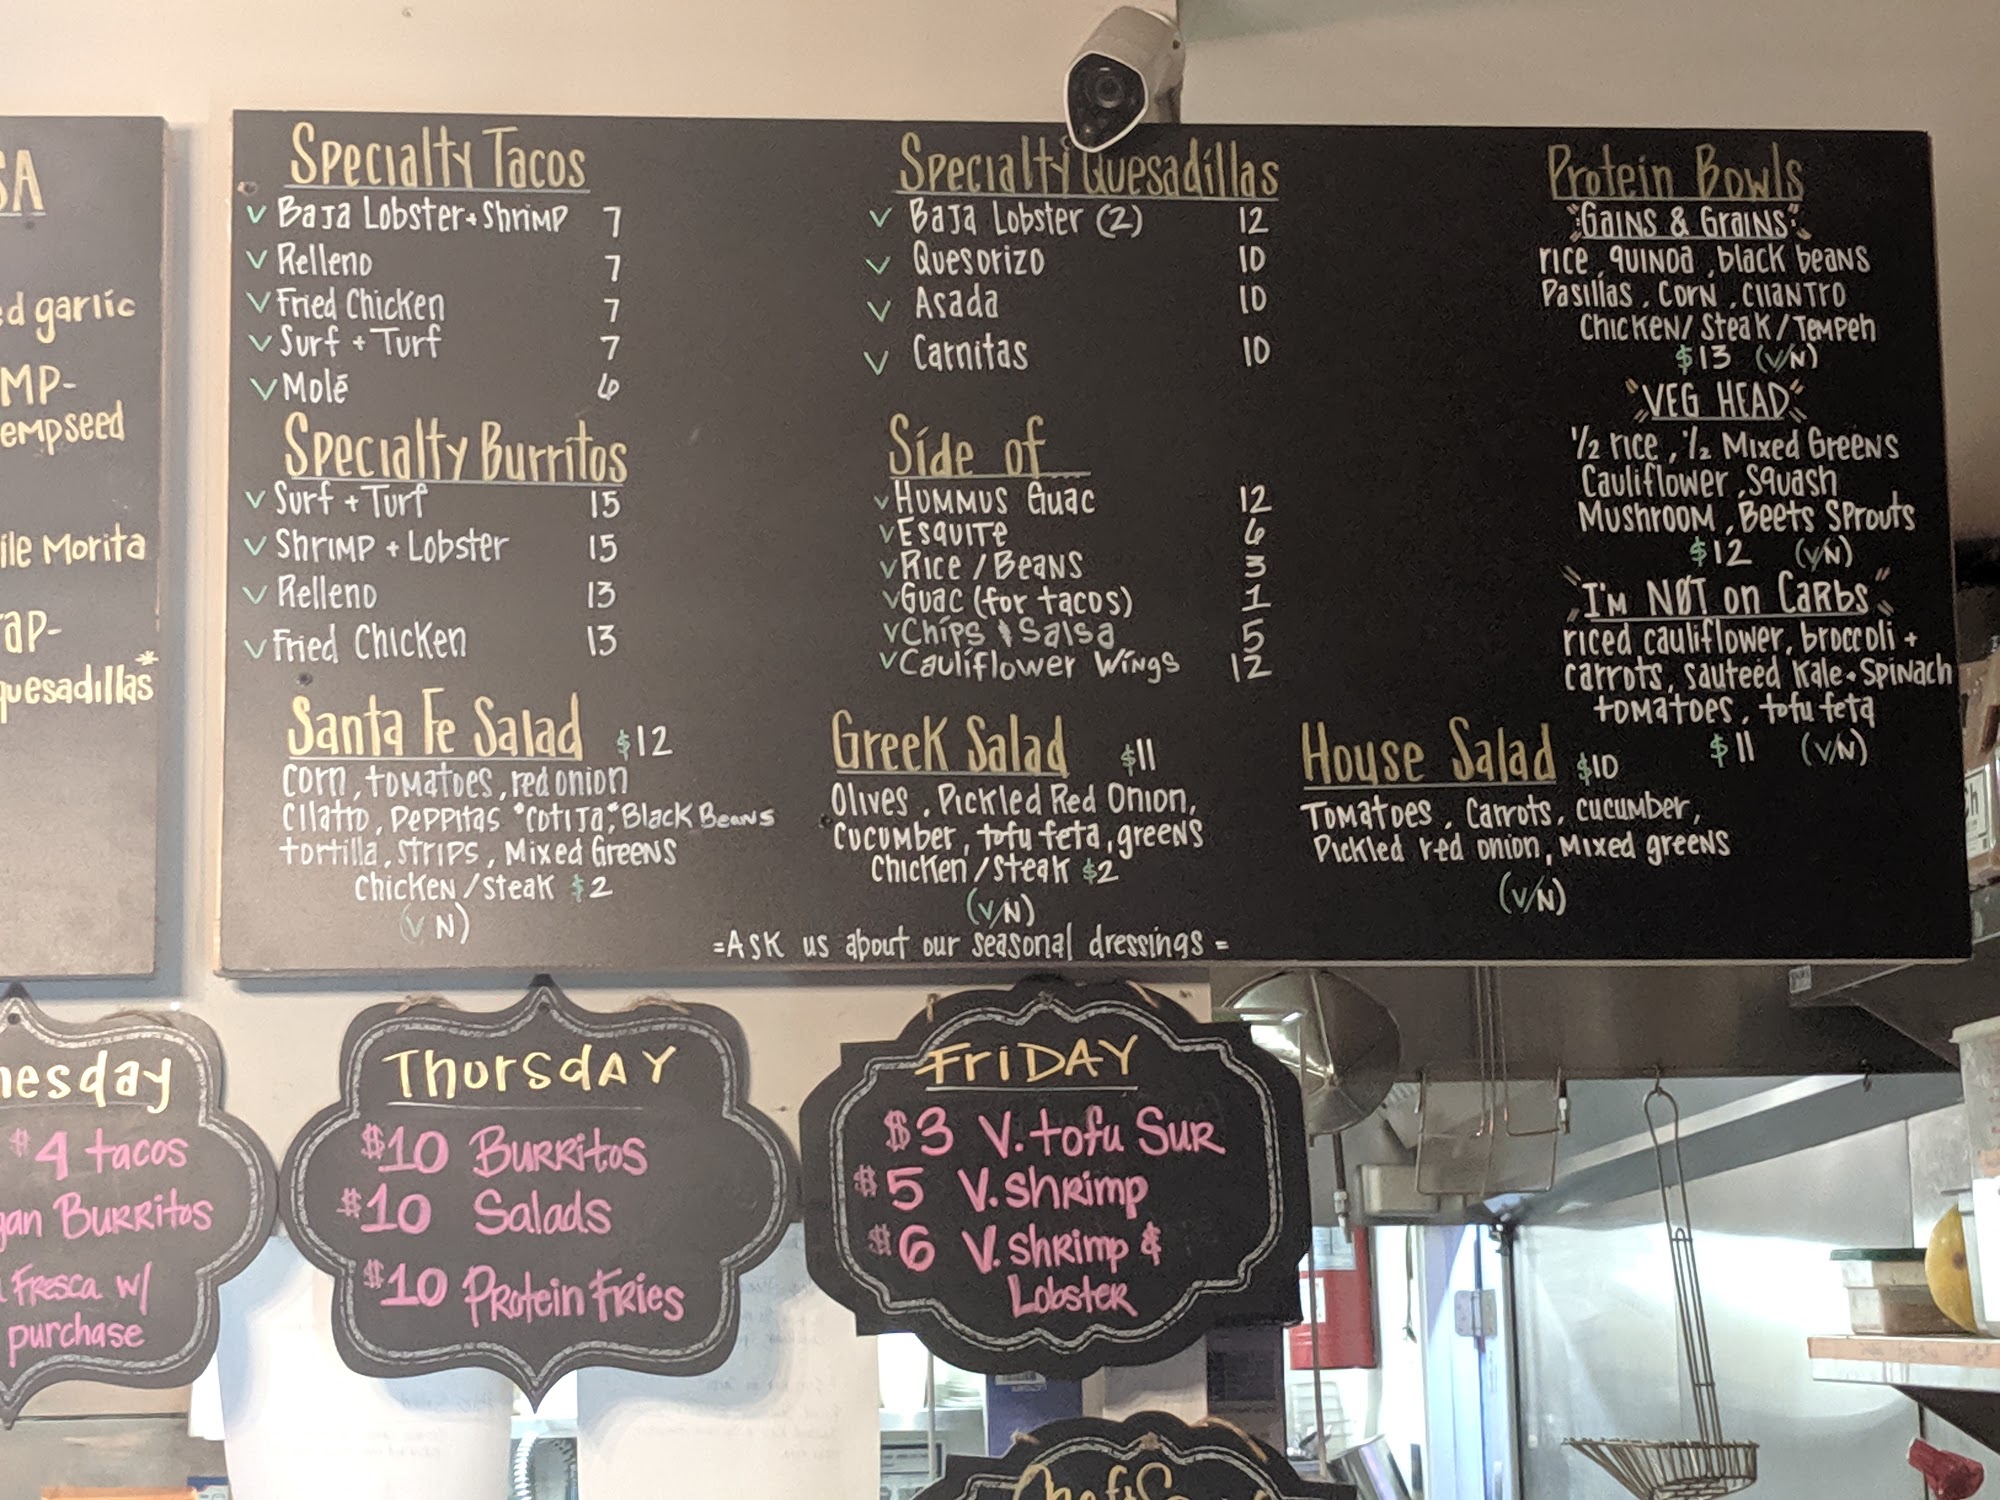 SA
ed garlic
MP-
empseed
ile Morita
ap-
quesadillas*
Specialty Tacos
V Baja Lobster + Shrimp 7
V Relleno 7
V Fried Chicken 7
V Surf + Turf 7
V Molé 6
Specialty Burritos
V Surf + Turf 15
V Shrimp + Lobster 15
V Relleno 13
V Fried Chicken 13
Santa Fe Salad $12
Corn, tomatoes, red onion
Cilatro, Peppitas "Cotija", Black Beans
tortilla, strips, Mixed Greens
Chicken/Steak $2
(V N)
Specialty Quesadillas
V Baja Lobster (2) 12
V Quesorizo 10
V Asada 10
V Carnitas 10
Side of
V Hummus Guac 12
V Esquite 6
V Rice / Beans 3
V Guac (for tacos) 1
V Chips & Salsa 5
V Cauliflower Wings 12
Greek Salad $11
Olives, Pickled Red Onion,
Cucumber, tofu feta, greens
Chicken/Steak $2
(V/N)
Protein Bowls
"Gains & Grains"
rice, quinoa, black beans
Pasillas, Corn, Cilantro
Chicken/Steak/Tempeh
$13 (V/N)
"VEG HEAD"
1/2 rice, 1/2 Mixed Greens
Cauliflower, Squash
Mushroom, Beets Sprouts
$12 (V/N)
"I'm NØT on Carbs"
riced cauliflower, broccoli +
carrots, sauteed Kale + Spinach
tomatoes, tofu feta
$11 (V/N)
House Salad $10
Tomatoes, Carrots, cucumber,
Pickled red onion, Mixed greens
(V/N)
=Ask us about our seasonal dressings=
nesday
$4 tacos
gan Burritos
Fresca w/
purchase
Thursday
$10 Burritos
$10 Salads
$10 Protein Fries
Friday
$3 V. tofu Sur
$5 V. Shrimp
$6 V. Shrimp &
Lobster